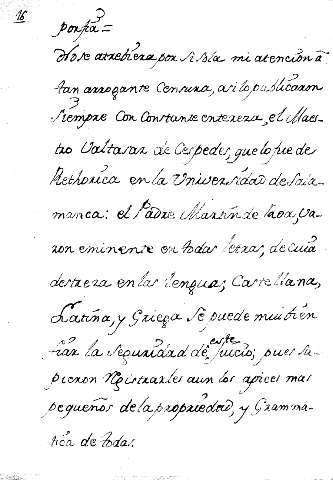 16
porfia =
No se atrebiera por si sola mi atencion â
tan arrogante Censura, asi lo publicaron
siempre Con Constante entereza, el Maes-
tro Valtasar de Cespedes, que lo fue de
Rethorica en la Universidad de Sala-
manca: el Padre Martin de Roa, Va-
ron eminente en todas letras, de cuia
destreza en las lenguas, Castellana,
Latina, y Griega se puede mui bien
fiar la seguridad de este juicio; pues su-
pieron Registrarles aun los apices mas
pequeños de la propriedad, y Gramma-
tica de todas.